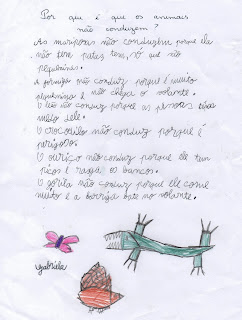 Por que é que os animais
não conduzem?
As mariposas não conduzem porque ela
não tem patas tem, só que são
pequeninas.
A formiga não conduz porque é muito
pequenina e não chega o volante.
O leão não conduz porque as pessoas
medo dele.
O crocodilo não conduz porque é
prigoso.
O ouriço não conduz porque ele tem
picos e raga os bancos.
O gorila não conduz porque ele come
muito e a barriga bate no volante.
Gabriela